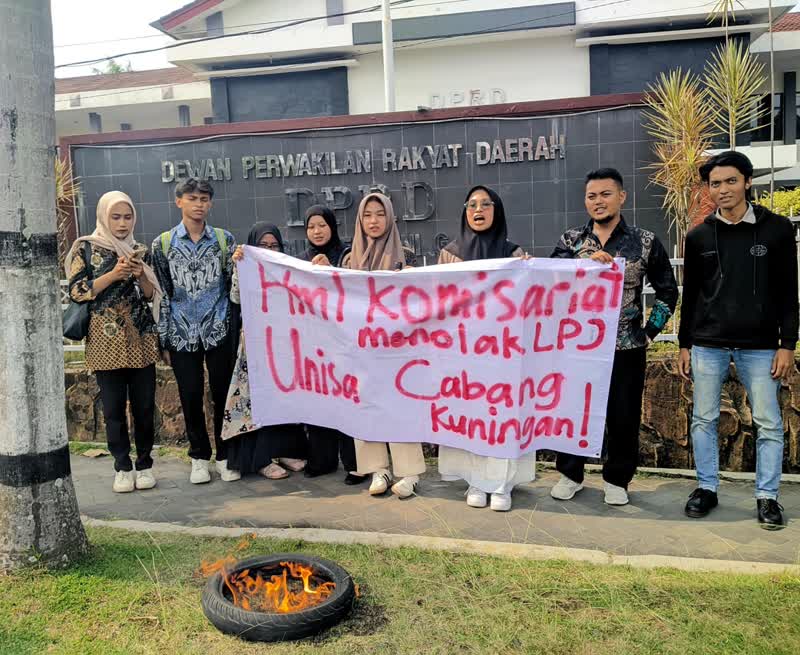 DPRD
DEWAN PERWAKILAN RAKYAT DAERAH
DPRD
Hm1 Komisariat
menolak LPJ
Unisa Cabang
Kuningan!